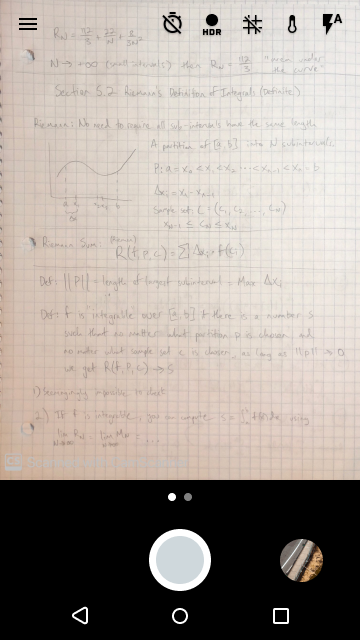 HDR
A
R_N = 112/3 + 32/N + 8/3N²
N → +∞ (small intervals) then R_N = 112/3 "area under the curve"
Section 5.2 Riemann's Definition of Integrals (Definite)
Riemann: No need to require all sub-intervals have the same length
A partition of [a, b] into N subintervals
P: a = x₀ < x₁ < x₂ ... < x_N-1 < x_N = b
Δx_i = x_i - x_i-1
Sample set C = (C₁, C₂, ..., C_N)
x_N-1 ≤ C_N ≤ x_N
Riemann Sum: R(f, P, C) = Σ Δx_i · f(C_i)
Def: ||P|| = length of largest subinterval = Max Δx_i
Def: f is "integrable" over [a, b] if there is a number S
such that no matter what partition P is chosen and
no matter what sample set C is chosen, as long as ||P|| → 0
we get R(f, P, C) → S
1) Seemingly impossible to check
2) If f is integrable, you can compute S = using
lim R_N = lim M_N = ...